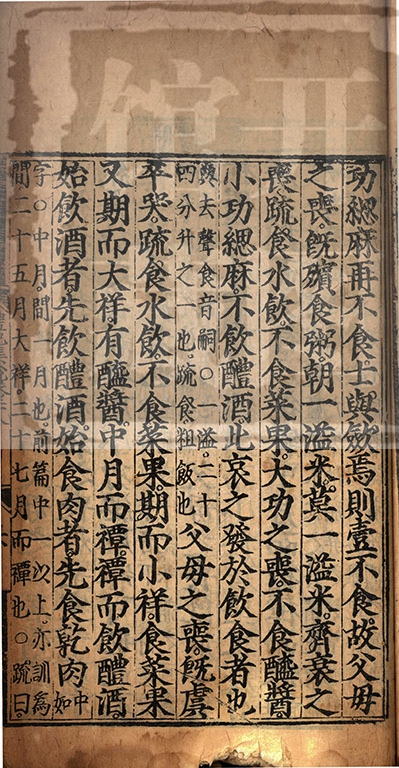 功緦麻再不食。士與斂焉則壹不食。故父母
之喪。旣殯食粥。朝一溢米。莫一溢米。齊衰之
喪。疏食水飮。不食菜果。大功之喪。不食醯醬。
小功緦麻不飮醴酒。此哀之發於飮食者也
與去聲食音嗣○一溢。二十四分升之一也。疏食。粗飯也 父母之喪。旣虞
卒哭。疏食水飮。不食菜果。期而小祥。食菜果
又期而大祥。有醯醬。中月而禫。禫而飮醴酒。
始飮酒者。先飮醴酒。始食肉者。先食乾肉 中如
字○中月。間一月也。前篇中一以上。亦訓爲
間。二十五月大祥。二十七月而禫也○疏曰。